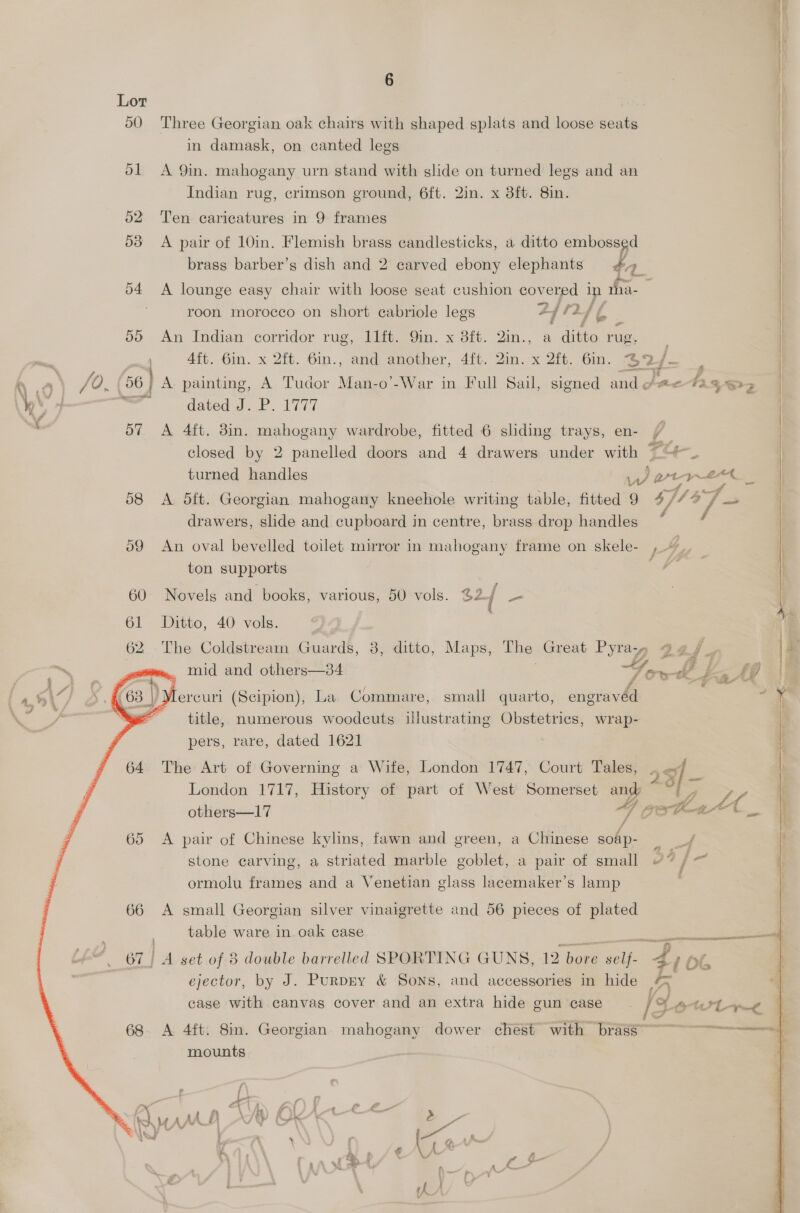 6
Lot
50 Three Georgian oak chairs with shaped splats and loose seats
in damask, on canted legs
51 A 9in. mahogany urn stand with slide on turned legs and an
Indian rug, crimson ground, 6ft. 2in. x 3ft. 8in.
52 Ten caricatures in 9 frames
53 A pair of 10in. Flemish brass candlesticks, a ditto embossed
brass barber's dish and 2 carved ebony elephants
54 A lounge easy chair with loose seat cushion covered in ma-
roon morocco on short cabriole legs
55 An Indian corridor rug, 11ft. 9in. x 3ft. 2in., a ditto rug,
4ft. 6in. x 2ft. 6in., and another, 4ft. 2in. x 2ft. 6in.
56 A painting, A Tudor Man-o'-War in Full Sail, signed and
dated J. P. 1777
57 A 4ft. 3in. mahogany wardrobe, fitted 6 sliding trays, en-
closed by 2 panelled doors and 4 drawers under with
turned handles
58 A 5ft. Georgian mahogany kneehole writing table, fitted 9
drawers, slide and cupboard in centre, brass drop handles
59 An oval bevelled toilet mirror in mahogany frame on skele-
ton supports
60 Novels and books, various, 50 vols.
61 Ditto, 40 vols.
62 The Coldstream Guards, 3, ditto, Maps, The Great Pyra-
mid and others—34
63 Mercuri (Scipion), La Commare, small quarto, engraved
title, numerous woodcuts illustrating Obstetrics, wrap-
pers, rare, dated 1621
64 The Art of Governing a Wife, London 1747, Court Tales,
London 1717, History of part of West Somerset and
others—17
65 A pair of Chinese kylins, fawn and green, a Chinese soap-
stone carving, a striated marble goblet, a pair of small
ormolu frames and a Venetian glass lacemaker's lamp
66 A small Georgian silver vinaigrette and 56 pieces of plated
table ware in oak case
67 A set of 3 double barrelled SPORTING GUNS, 12 bore self-
ejector, by J. Purdey & Sons, and accessories in hide
case with canvas cover and an extra hide gun case
68 A 4ft. 8in. Georgian mahogany dower chest with brass
mounts